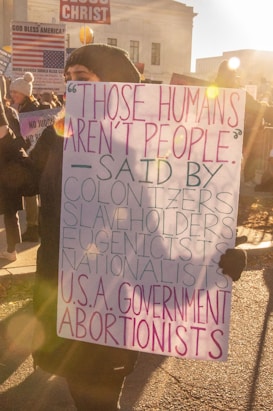 JESUS
CHRIST
GOD BLESS AMERICA
"THOSE HUMANS
AREN'T PEOPLE."
— SAID BY
COLONIZERS
SLAVEHOLDERS
EUGENICISTS
NATIONALISTS
U.S.A. GOVERNMENT
ABORTIONISTS